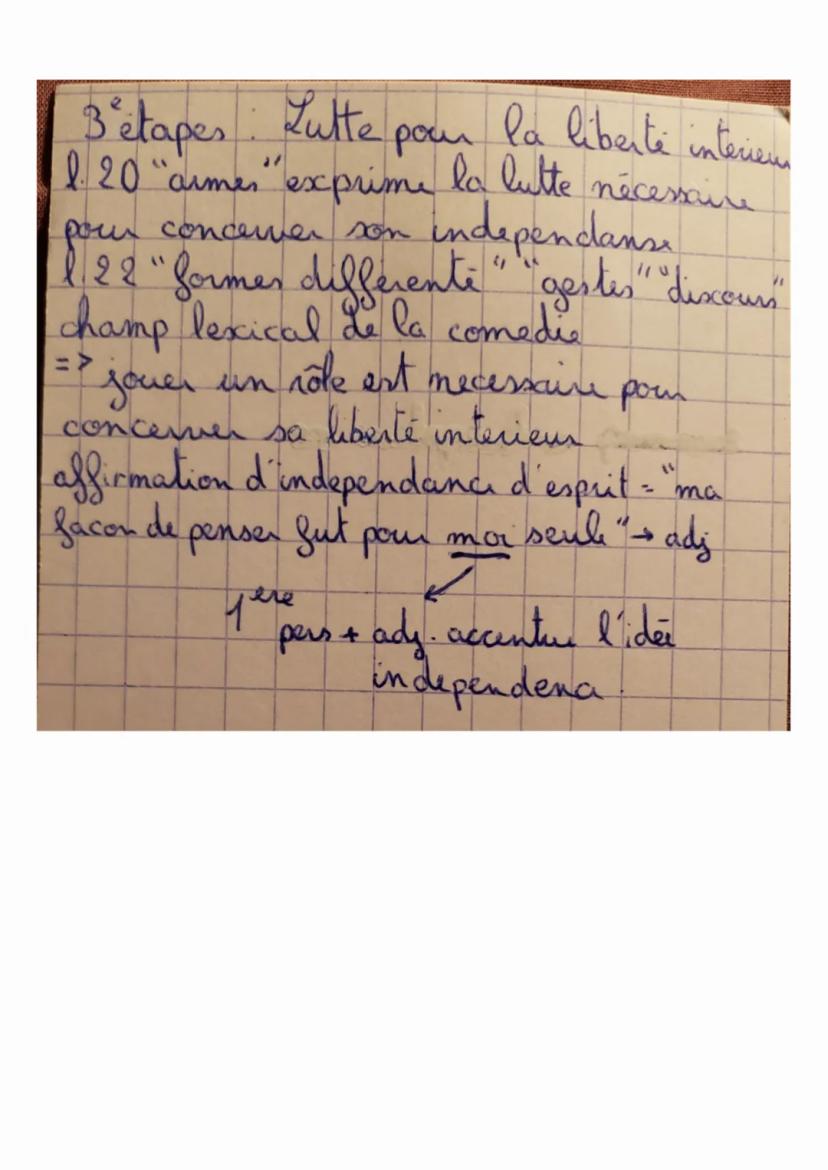 3e étapes : Lutte pour la liberté interieur
l.20 "armes" exprime la lutte nécessaire
pour concerver son independanse
l.22 "formes différente" "gestes" "discours"
champ lexical de la comedie
=> jouer un rôle est necessaire pour
concerver sa liberté interieur
affirmation d'independance d'esprit = "ma
facon de penser fut pour moi seule" → adj
1ere
pers + adj. accentue l'idée
independence.